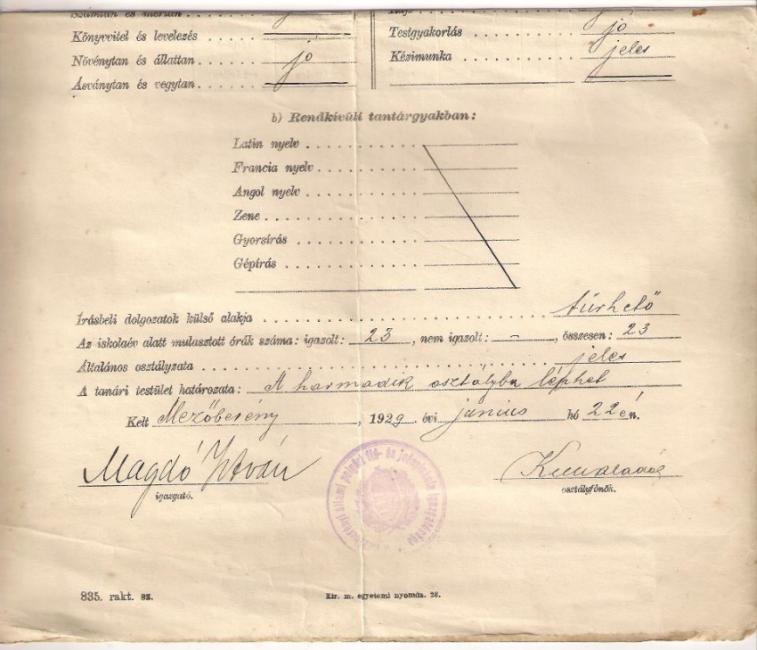 Számtan és mértan
Könyvvitel és levelezés
Növénytan és állattan jó
Ásványtan és vegytan
Testgyakorlás jó
Kézimunka jeles
b) Rendkívüli tantárgyakban:
Latin nyelv
Francia nyelv
Angol nyelv
Zene
Gyorsírás
Gépírás
Írásbeli dolgozatok külső alakja tűrhető
Az iskolaév alatt mulasztott órák száma: igazolt: 23, nem igazolt: -, összesen: 23
Általános osztályzata jeles
A tanári testület határozata: A harmadik osztályba léphet
Kelt Mezőberény, 1929. évi június hó 22 én.
Magdó István
igazgató.
osztályfőnök.
835. rakt. sz.
Kir. m. egyetemi nyomda. 28.